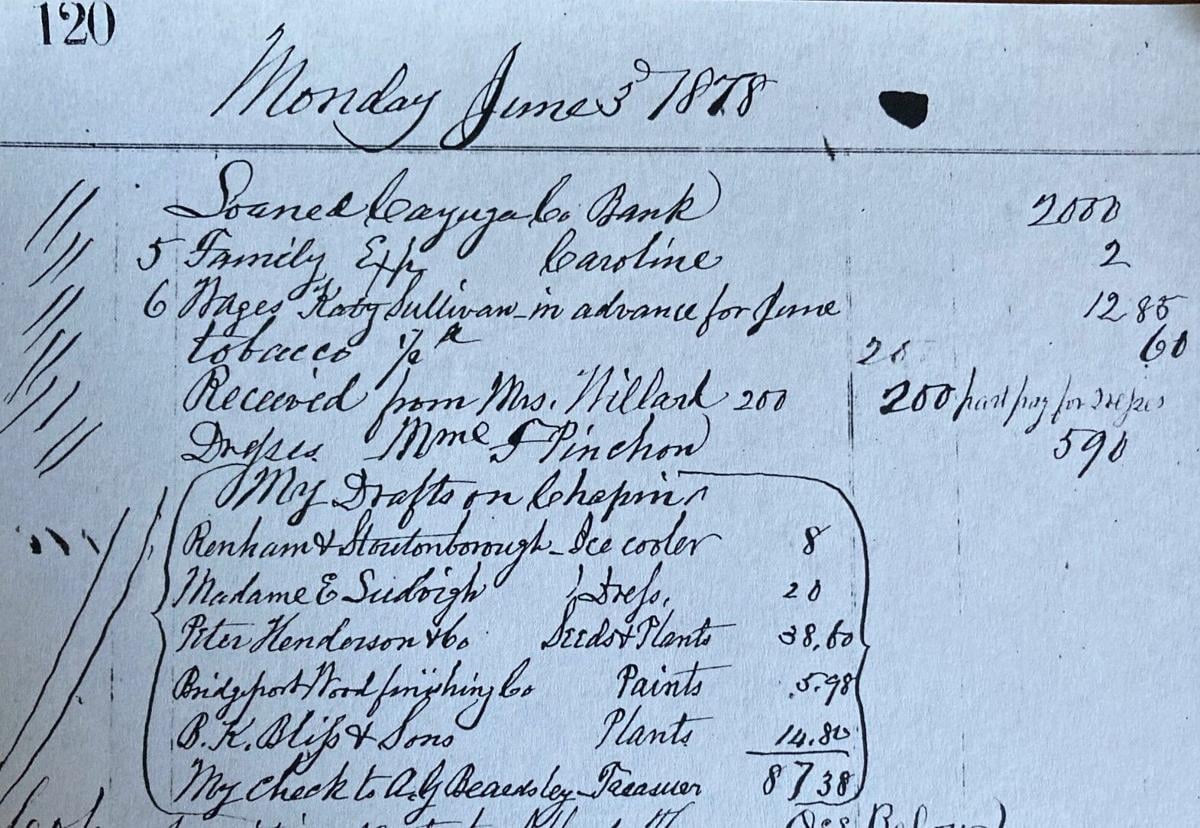 120
Monday June 3d 1878
Loaned Cayuga Co Bank 2000
5 Family Exp Caroline 2
6 Wages Sullivan in advance for June 12 85
tobacco 60
Received from Mrs. Willard 200 200 part pay for Dresses
Dresses Mme F Pinchon 590
My Drafts on Chapin
Renham & Stoutonborough - Ice cooler 8
Madame E Ludvigh 1 Dress, 20
Peter Henderson & Co Seeds & Plants 38,60
Bridgeport Wood finishing Co Paints 5.98
B. K. Bliss & Sons Plants 14.80
My check to A.G Beardsley Treasurer 87 38